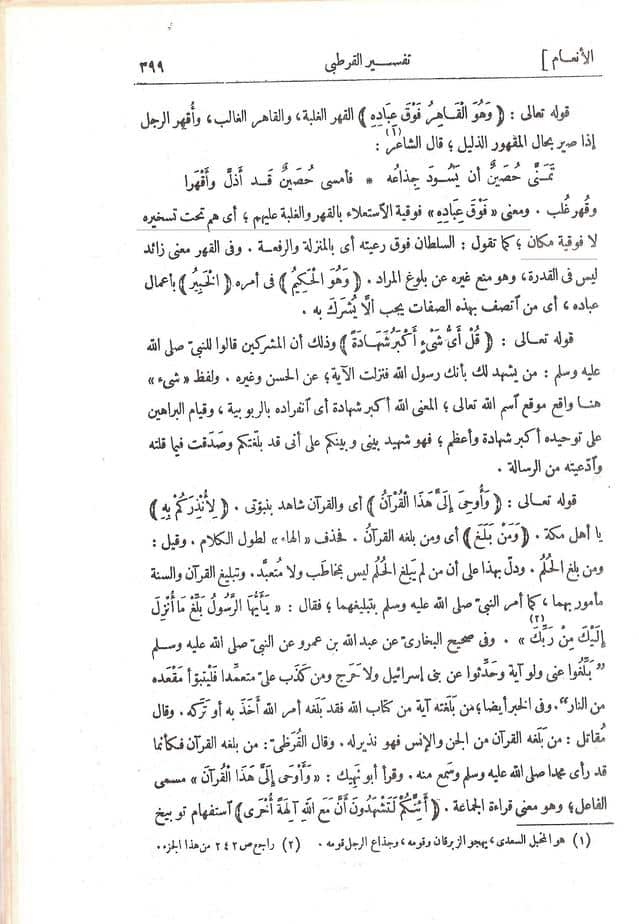 الأنعام] تفسير القرطبى ٣٩٩
قوله تعالى : ﴿ وَهُوَ الْقَاهِرُ فَوْقَ عِبَادِهِ ﴾ القهر الغلبة، والقاهر الغالب، وأُقهِر الرجل
إذا صير بحال المقهور الذليل ؛ قال الشاعر(١) :
تَمَنَّى حُصَيْنٌ أن يَسُودَ جِذَاعُه * فأمسى حُصَيْنٌ قد أَذَلَّ وأَقْهَرا
وقُهِر غُلب . ومعنى « فَوْقَ عِبَادِهِ » فوقية الاستعلاء بالقهر والغلبة عليهم ؛ أى هم تحت تسخيره
لا فوقية مكان ؛ كما تقول : السلطان فوق رعيته أى بالمنزلة والرفعة . وفى القهر معنى زائد
ليس فى القدرة، وهو منع غيره عن بلوغ المراد. ﴿ وَهُوَ الْحَكِيمُ ﴾ فى أمره ﴿ الْخَبِيرُ ﴾ بأعمال
عباده، أى من اتصف بهذه الصفات يجب ألّا يُشْرَكَ به .
قوله تعالى : ﴿ قُلْ أَىُّ شَىْءٍ أَكْبَرُ شَهَادَةً ﴾ وذلك أن المشركين قالوا للنبىّ صلى الله
عليه وسلم : من يشهد لك بأنك رسول الله فنزلت الآية ؛ عن الحسن وغيره . ولفظ « شىء »
هنا واقع موقع اسم الله تعالى ؛ المعنى الله أكبر شهادة أى انفراده بالربوبية ، وقيام البراهين
على توحيده أكبر شهادة وأعظم ؛ فهو شهيد بينى وبينكم على أنى قد بلّغتكم وصَدَقت فيما قلته
وادّعيته من الرسالة .
قوله تعالى : ﴿ وَأُوحِىَ إِلَىَّ هَذَا الْقُرْآنُ ﴾ أى والقرآن شاهد بنبوّتى . ﴿ لِأُنْذِرَكُمْ بِهِ ﴾
يا أهل مكة . ﴿ وَمَنْ بَلَغَ ﴾ أى ومن بلغه القرآنُ . فحذف « الهاء » لطول الكلام . وقيل :
ومن بلغ الحُلُم . ودلّ بهذا على أن من لم يَبلغ الحُلُم ليس بمخاطَب ولا مُتعبَّد . وتبليغ القرآن والسنة
مأمور بهما، كما أمر النبىّ صلى الله عليه وسلم بتبليغهما ؛ فقال : « يَأَيُّهَا الرَّسُولُ بَلِّغْ مَا أُنْزِلَ
إِلَيْكَ مِنْ رَبِّكَ »(٢) . وفى صحيح البخارىّ عن عبد الله بن عمرو عن النبىّ صلى الله عليه وسلم
” بَلِّغُوا عنى ولو آية وحَدِّثوا عن بنى إسرائيل ولا حَرج ومن كذَب علىّ متعمّدا فليَتبوأ مَقْعده
من النار “. وفى الخبر أيضا؛ من بَلَغته آية من كتاب الله فقد بَلَغه أمر الله أَخَذ به أو تركه . وقال
مُقاتل : من بَلَغه القرآن من الجن والإنس فهو نذير له . وقال القُرَظىّ: من بلغه القرآن فكأنما
قد رأى محمدا صلى الله عليه وسلم وسَمع منه . وقرأ أبو نَهِيك : « وَأَوْحَى إِلَىَّ هَذَا الْقُرْآنَ » مسمى
الفاعل؛ وهو معنى قراءة الجماعة . ﴿ أَئِنَّكُمْ لَتَشْهَدُونَ أَنَّ مَعَ اللهِ آلِهَةً أُخْرَى ﴾ استفهام توبيخ
(١) هو المخبل السعدى، يهجو الزبرقان وقومه، وجذاع الرجل قومه . (٢) راجع ص ٢٤٢ من هذا الجزء .